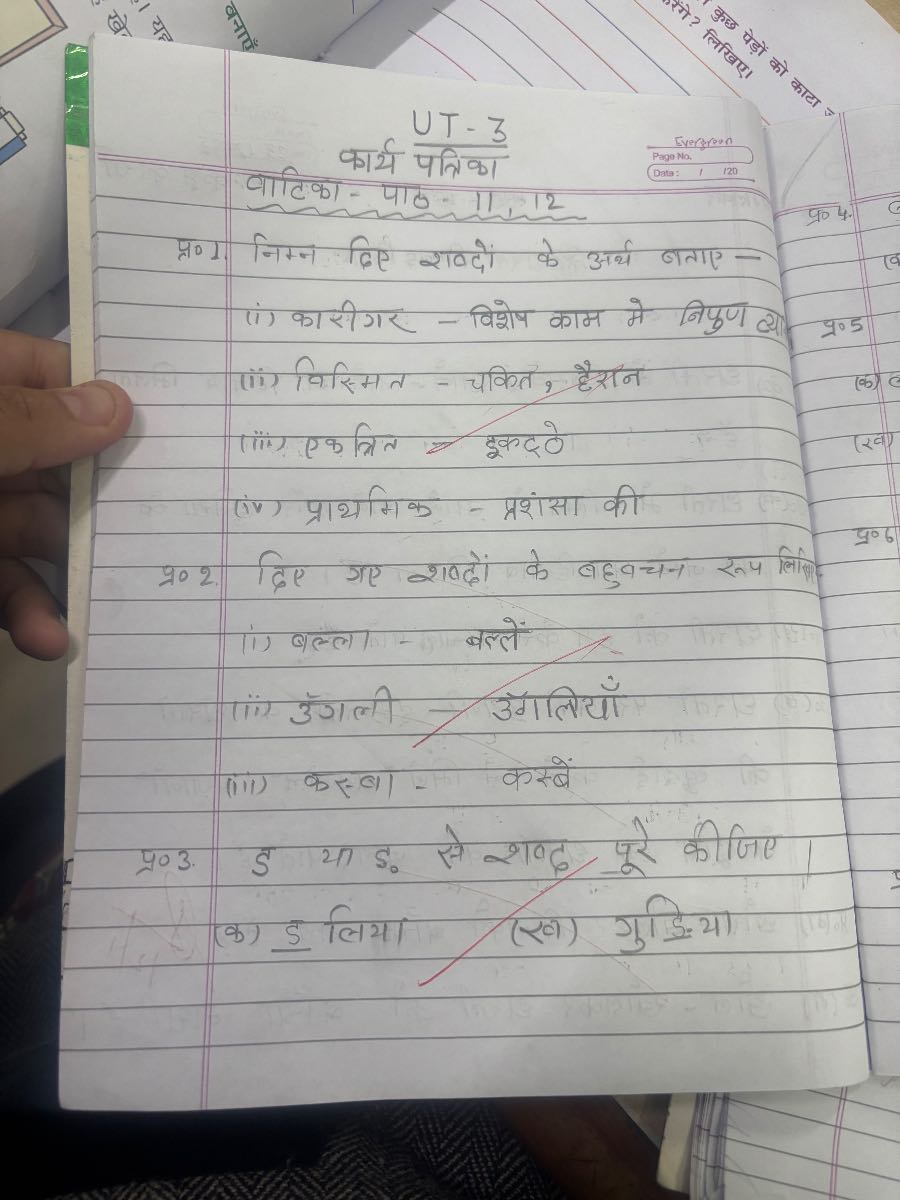 बनाएँ
। यह
खे
कुछ पेड़ों को काटा
रेंगे? लिखिए।
UT-3
कार्य पत्रिका
वाटिका - पाठ - 11, 12
Evergreen
Page No.
Date: / /20
प्र०1. निम्न दिए शब्दों के अर्थ बताए —
(i) कारीगर - विशेष काम मे निपुण व्य
(ii) विस्मित - चकित, हैरान
(iii) एकत्रित - इकट्ठे
(iv) प्राथमिक - प्रशंसा की
प्र०2. दिए गए शब्दों के बहुवचन रूप लिखि
(i) बल्ला - बल्लें
(ii) उँगली - उँगलियाँ
(iii) कस्बा - कस्बें
प्र०3. ड या ड़ से शब्द पूरे कीजिए।
(क) डलिया (ख) गुड़िया
प्र०4.
प्र०5
(क)
(ख)
प्र०6